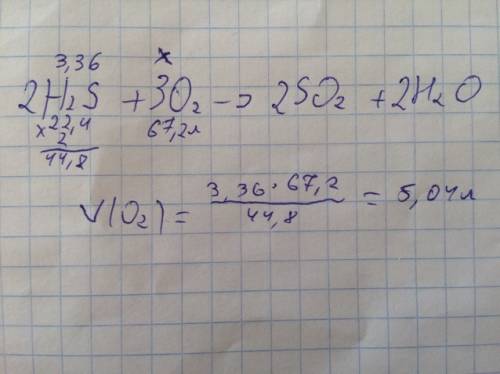 3,36 x
2H₂S + 3O₂ -> 2SO₂ + 2H₂O
x 22,4 67,2л
2
44,8
V(O₂) = 3,36 · 67,2 / 44,8 = 5,04л